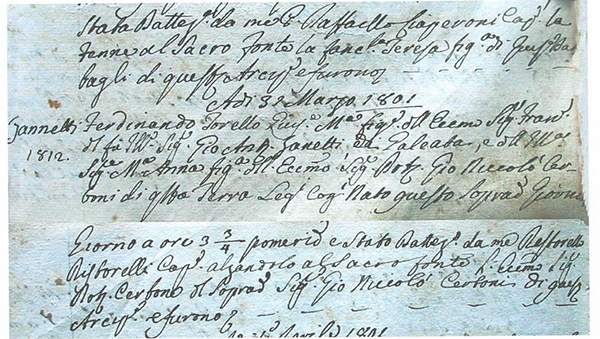 Stato Battez.º da me P. Raffaello Ciaperoni Cap.º la
tenne al Sacro fonte la fanc.ª Teresa fig.ª di Gius.º Ba
bagli di quest'Arcip.e e furono
Adi 31 Marzo 1801
Jannetti Ferdinando Torello Luig.º M.ª fig.º dell Eccmo Sig.e Fran.º
1812. del fu Ill.º Sig.e Gio Ant.º Janetti da Galeata, e dell Ill.ª
Sig.ª M.ª Anna fig.ª dell Eccmo Sig.e Dott.e Gio Niccolò Cer
boni di q.sta Terra Leg.i Cog.i Nato questo Soprad.º Giorno
Giorno a ore 3 3/4 pomerid e Stato Battez.º da me Ristorello
Ristorelli Cap.º alzandolo al Sacro fonte l'Eccmo Sig.e
Dott.e Cerbone del Soprad.º Sig.e Gio Niccolò Cerboni di quest
Arcip.e e furono
Aprile 1801